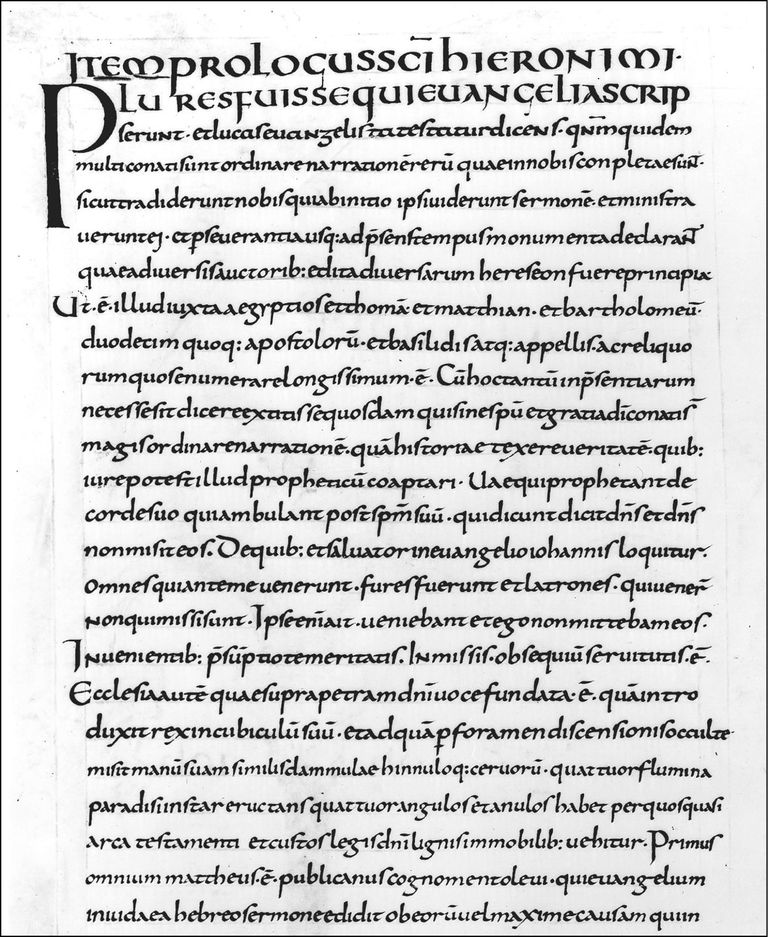 ITEM PROLOGUS SCĪ HIERONIMI·
PLURES FUISSE QUI EUANGELIA SCRIP
serunt· et lucas euangelista testatur dicens· qnm̄ quidem
multi conati sunt ordinare narrationē rerū quae in nobis conpletae sunt·
sicut tradiderunt nobis qui ab initio ipsi uiderunt sermonē· et ministra
uerunt ei· et pseuerantia usq: ad p̄sens tempus monumenta declarant
quae a diuersis auctorib: edita diuersarum hereseon fuere principia
Ut· ē· illud iuxta aegyptios et thomā et matthian· et bartholomeū·
duodecim quoq: apostolorū· et basilidis atq: appellis· ac reliquo
rum quos enumerare longissimum· ē· Cū hoc tantū in p̄sentiarum
necesse sit dicere extitisse quosdam qui sine spū et gratia dī conati s̄
magis ordinare narrationē· quā historiae texere ueritatē· quib:
iure potest illud propheticū coaptari· Uae qui prophetant de
corde suo qui ambulant post spm̄ suū· qui dicunt dicit dn̄s et dn̄s
non misit eos· De quib: et saluator in euangelio iohannis loquitur·
omnes qui ante me uenerunt· fures fuerunt et latrones· qui uener̄
non qui missi sunt· Ipse enī ait· ueniebant et ego non mittebam eos·
In uenientib: p̄sūptio temeritatis· In missis· obsequiū seruitutis· ē·
Ecclesia autē quae supra petram dnī uoce fundata· ē· quā intro
duxit rex in cubiculū suū· et ad quā p foramen discensionis occultē·
misit manū suam similis dammulae hinnuloq: ceruorū· quattuor flumina
paradisi instar eructans quattuor angulos et anulos habet per quos quasi
arca testamenti et custos legis dnī lignis immobilib: uehitur· Primus
omnium mattheus· ē· publicanus cognomento leui· qui euangelium
in iudaea hebreo sermone edidit ob eorū uel maxime causam qui in